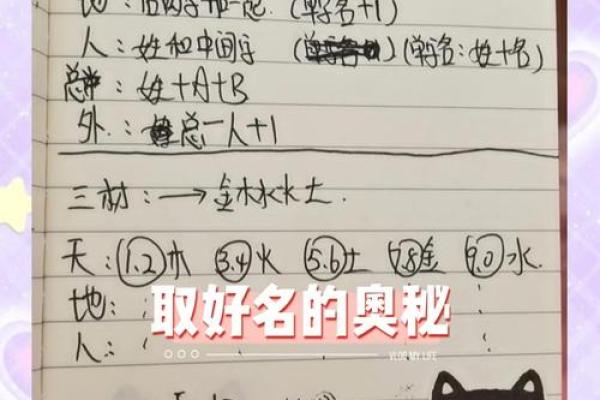 地：后两字加一起.(单字名+1)
人：姓和中间字 (单字名：姓+名)
总：姓+A+B
外.：总-人+1
三材：→金木水火土.
天：1.2木 3.4火 5.6土 7.8金 9.0水.
地：
取好名的奥秘
人：
VLOG MY LIFE